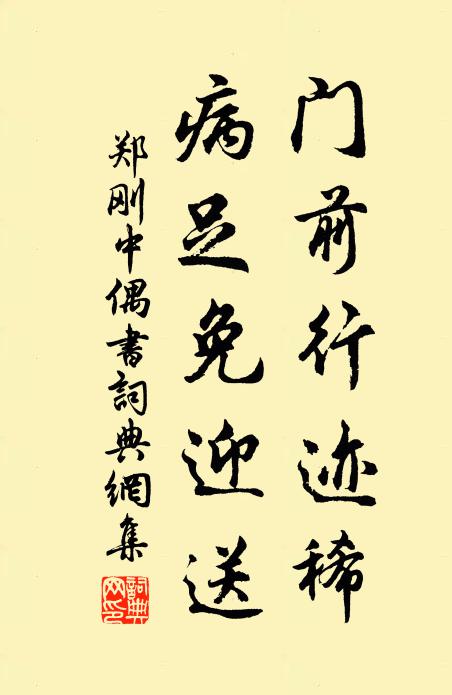 门前行迹稀
病足免迎送
郑刚中偶书詞典網集